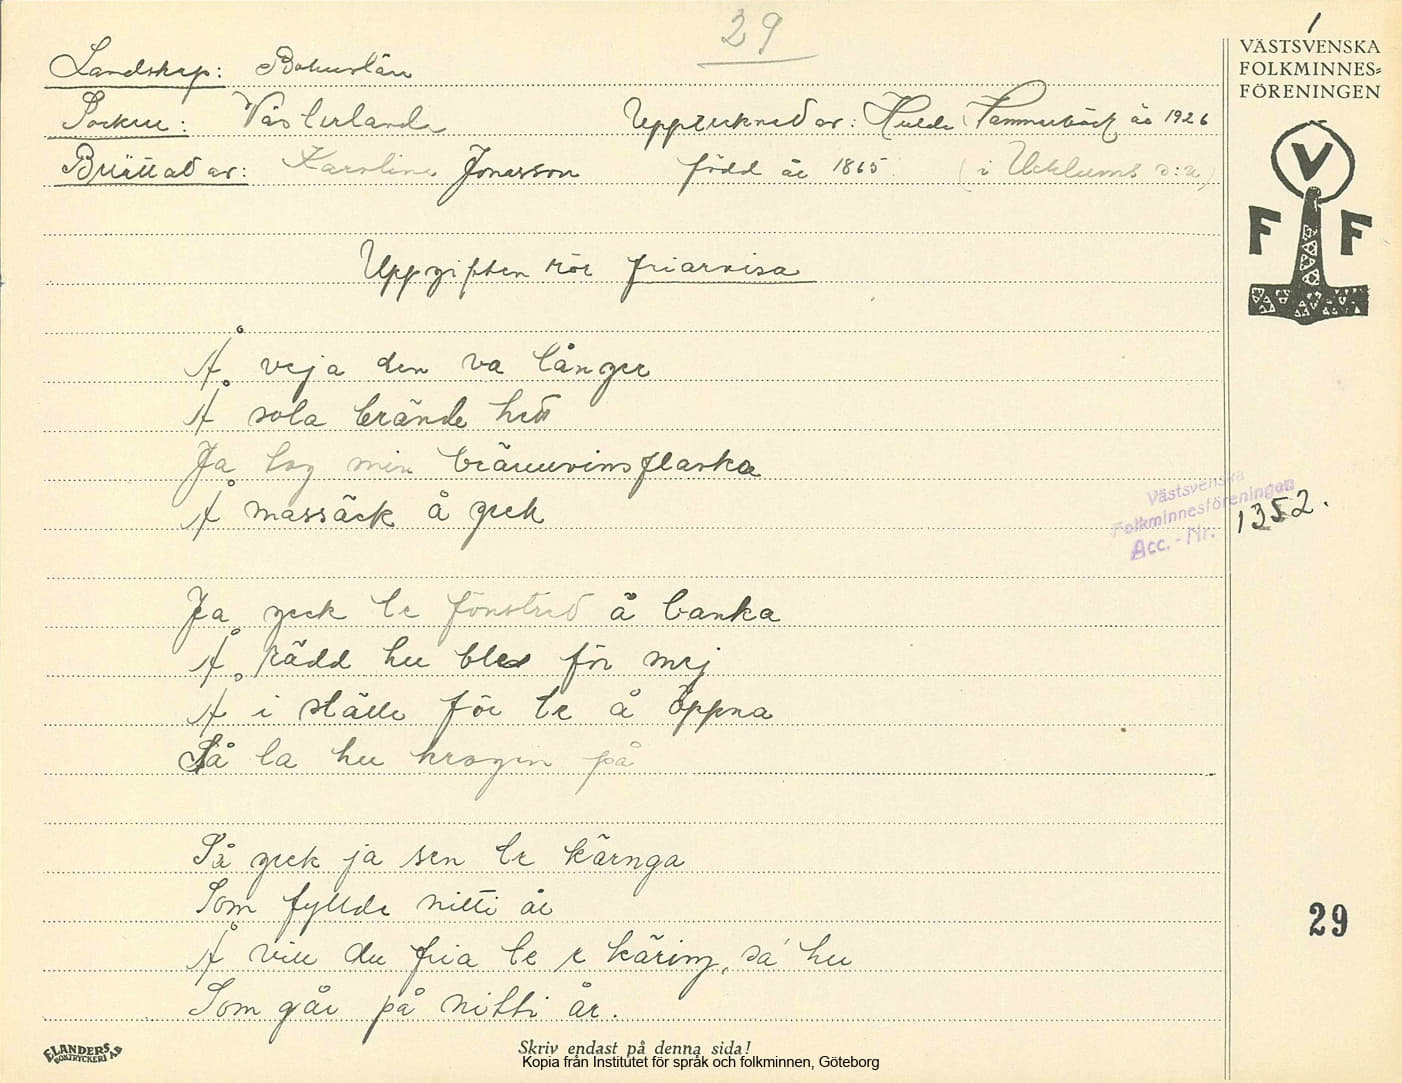 29
1
VÄSTSVENSKA
FOLKMINNES=
FÖRENINGEN
Landskap: Bohuslän
Socken: Västerlanda Upptecknad av: Hulda Hammarbäck år 1926
Berättad av: Karolina Jonasson född år 1865 (i Ucklums s:n)
V
F F
Uppgiften rör friarvisa
Å veja den va långer
Å sola brände hett
Ja tog min brännvinsflaska
Å massäck å geck
Västsvenska
Folkminnesföreningen
Acc.-Nr. 1352.
Ja geck te fönstred å banka
Å rädd hu ble för mej
Å i ställe för te å öppna
Så la hu krogen på
Så geck ja sen te kärnga
Som fyllde nitti år
29
Å vill du fria te e käring, sa' hu
Som går på nitti år.
ELANDERS
BOKTRYCKERI A.B
Skriv endast på denna sida!
Kopia från Institutet för språk och folkminnen, Göteborg